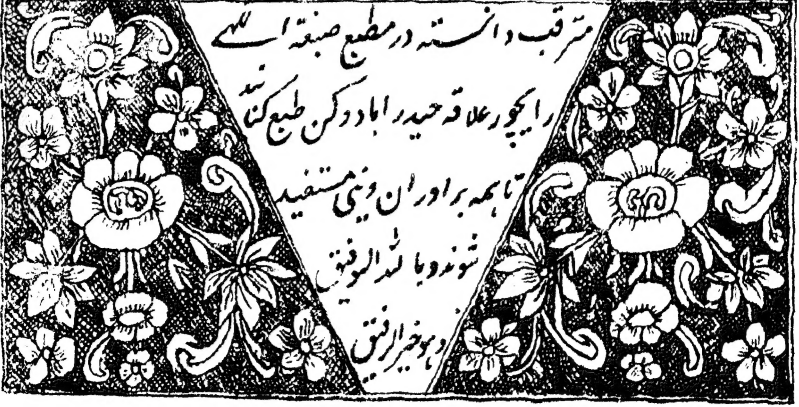 مترقب دانسته در مطبع صبغة اللهی
رایچور علاقه حیدراباد دکن طبع کنانید
تا همه برادران دینی مستفید
شوند و بالله التوفیق
و هو خیر الرفیق